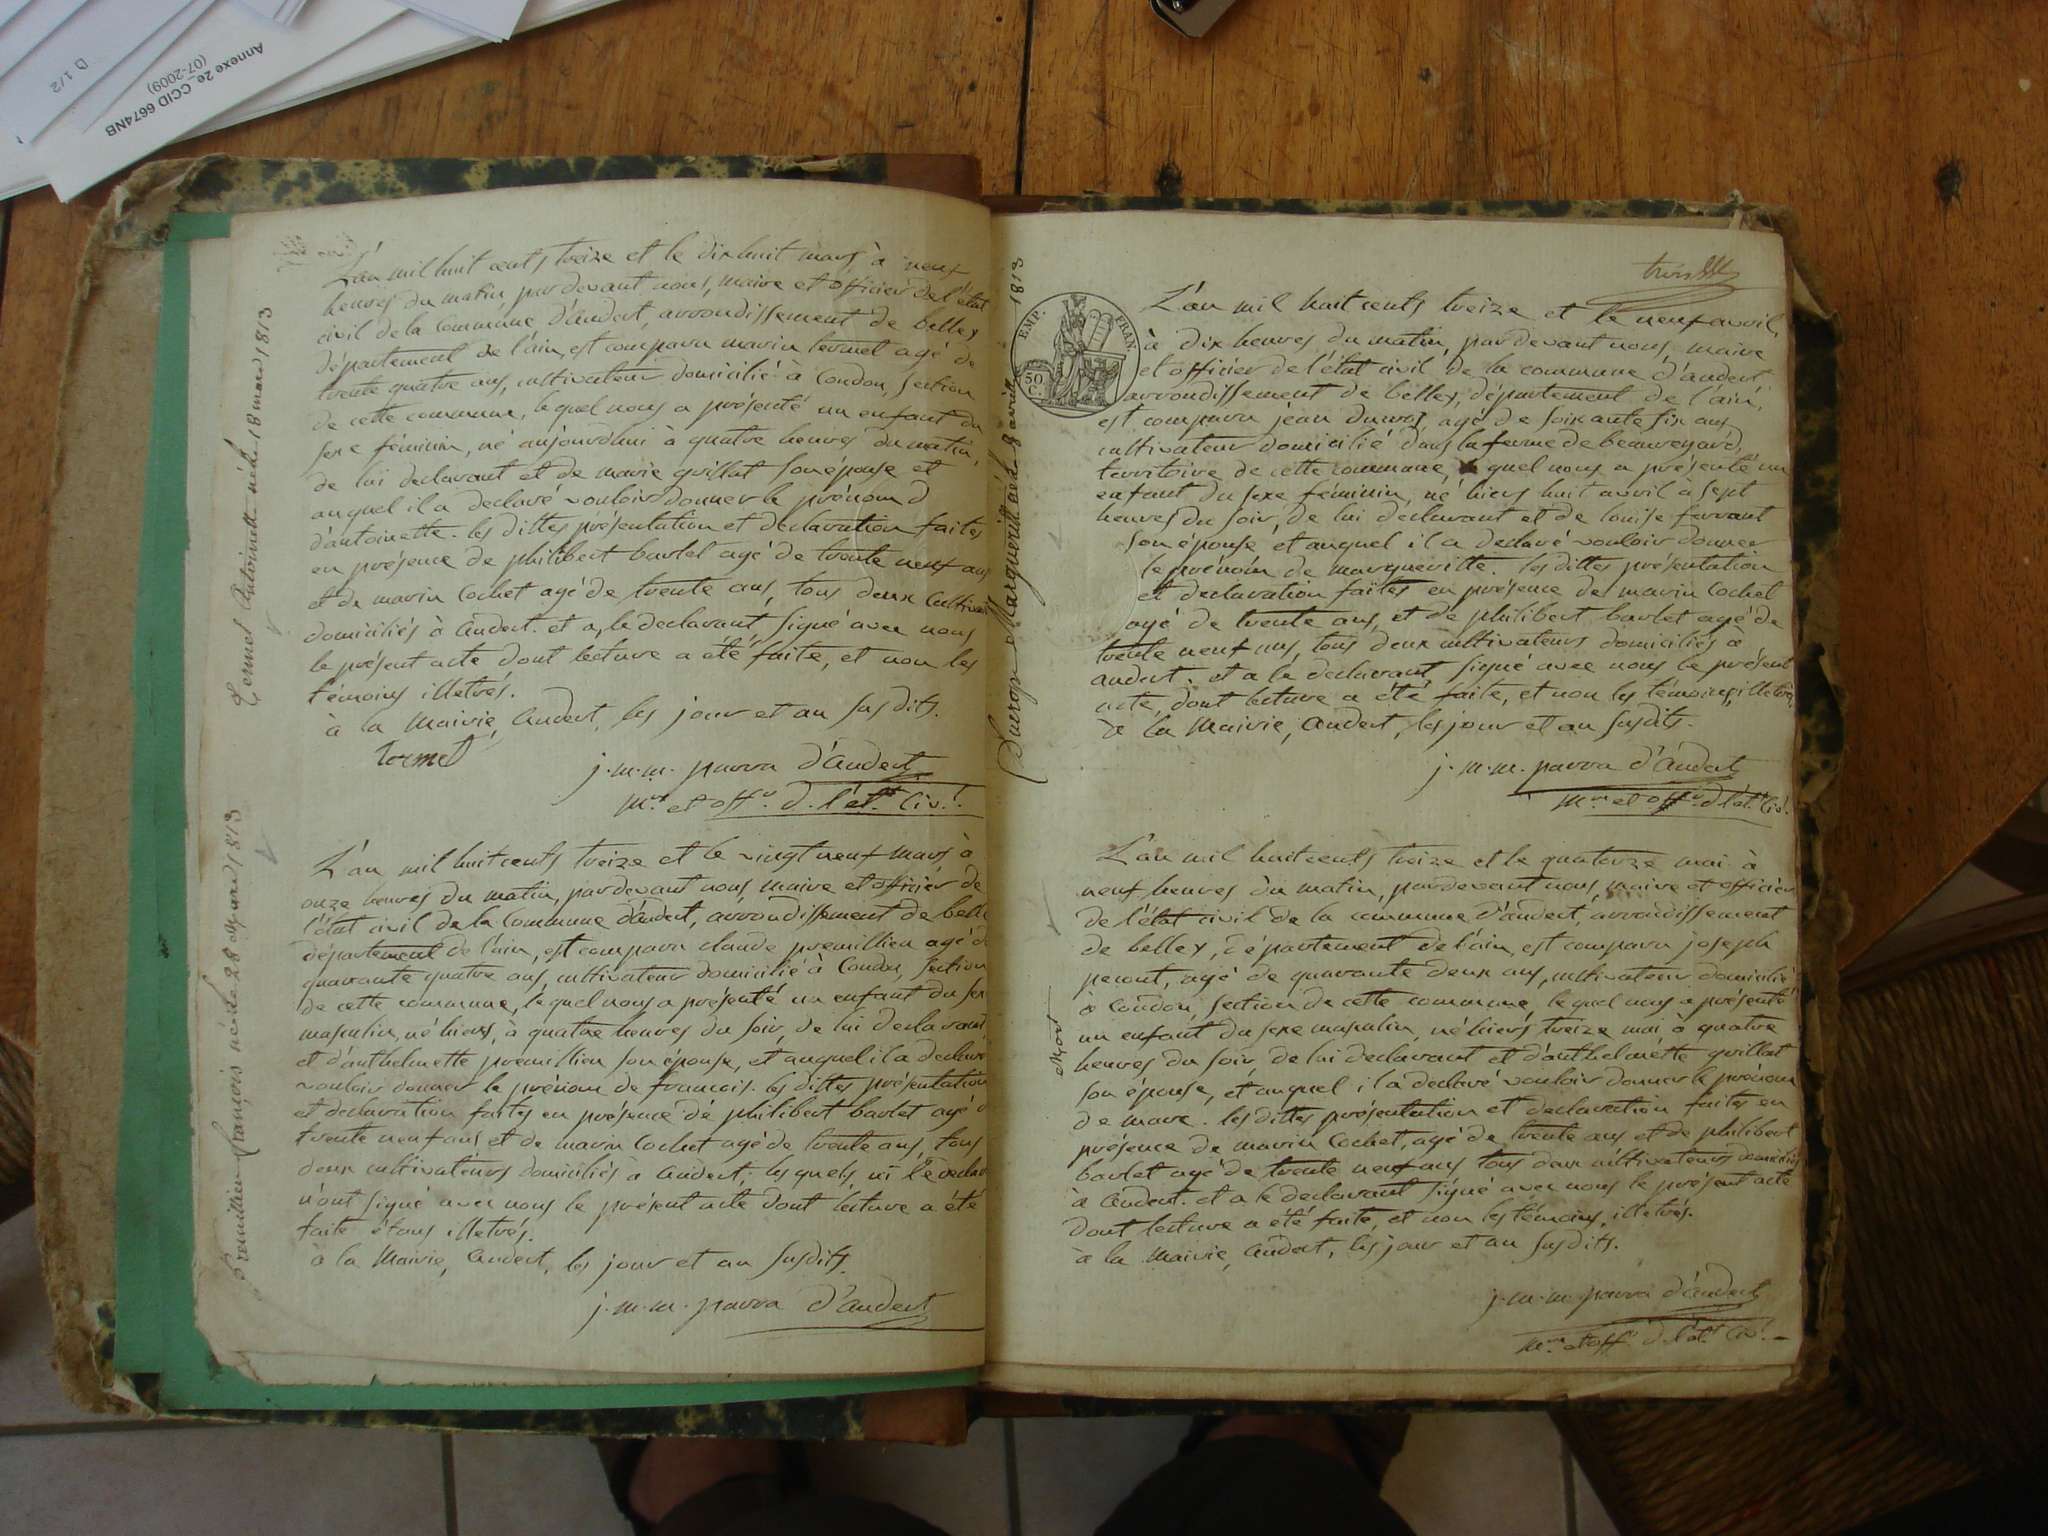 D 1/2
Annexe 2e_CCID 6674NB
(07-2009)
L'an mil huit cents treize et le dix huit mars à neuf
heures du matin, pardevant nous, maire et officier de l'état
civil de la Commune d'andert, arrondissement de belley
département de l'ain, est comparu marin termet agé de
trente quatre ans, cultivateur domicilié à Condon, section
de cette commune, lequel nous a présenté un enfant du
sexe féminin, né aujourd'hui à quatre heures du matin,
de lui declarant et de marie guillat son épouse et
auquel il a declaré vouloir donner le prénom
d'antoinette. les dittes présentation et declaration faites
en présence de philibert barlet agé de trente neuf ans
et de marin Cochet agé de trente ans, tous deux Cultivat
domiciliés à Andert. et a, le declarant signé avec nous
le présent acte dont lecture a été faite, et non les
témoins illetrés.
à la Mairie, Andert, les jour et an susdits.
termet
j. m. m. parra d'Andert
m.re et off.r d. l'ét.t Civ.l.
Termet Antoinette née le 18 mars 1813
L'an mil huit cents treize et le vingt neuf mars à
onze heures du matin, pardevant nous, maire et officier de
l'état civil de la Commune d'andert, arrondissement de bell
département de l'ain, est comparu claude premillieu agé d
quarante quatre ans, cultivateur domicilié à Condon, section
de cette commune, lequel nous a présenté un enfant du sex
masculin, né hiers, à quatre heures du soir, de lui declarant
et d'anthelmette premillieu son épouse, et auquel il a declaré
vouloir donner le prénom de francois. les dittes présentation
et declaration faites en présence de philibert barlet agé d
trente neuf ans et de marin Cochet agé de trente ans, tous
deux cultivateurs domiciliés à Andert, les quels, ni le declar
n'ont signé avec nous le présent acte dont lecture a été
faite étans illetrés.
à la Mairie, Andert, les jour et an susdits.
j. m. m. parra d'andert
Premillieu François né le 28 mars 1813
trois
EMP. FRAN.
50 C.
L'an mil huit cents treize et le neuf avril,
à dix heures du matin, pardevant nous, maire
et officier de l'état civil de la commune d'andert
arrondissement de belley, département de l'ain,
est comparu jean duroz, agé de soixante six ans
cultivateur domicilié dans la ferme de beauregard,
territoire de cette commune, le quel nous a présenté un
enfant du sexe féminin, né hiers huit avril à sept
heures du soir, de lui déclarant et de louise ferrant
son épouse et auquel il a declaré vouloir donner
le prénom de marguerite. les dittes présentation
et declaration faites en présence de marin Cochet
agé de trente ans, et de philibert barlet agé de
trente neuf ans, tous deux cultivateurs domiciliés à
andert. et a le declarant signé avec nous le présent
acte, dont lecture a été faite, et non les témoins, illetrés,
à la Mairie, Andert, les jour et an susdits.
j. m. m. parra d'Andert
m.re et off.r d. l'ét.t Civ.l.
Duroz Marguerite née le 8 avril 1813
L'an mil huit cents treize et le quatorze mai à
neuf heures du matin, pardevant nous, maire et officier
de l'état civil de la commune d'andert, arrondissement
de belley, département de l'ain, est comparu joseph
peront, agé de quarante deux ans, cultivateur domicilié
à Condon, section de cette commune, le quel nous a présenté
un enfant du sexe masculin, né hiers treize mai à quatre
heures du soir, de lui declarant et d'anthelmette guillat
son épouse, et auquel il a declaré vouloir donner le prénom
de marc. les dittes présentation et declaration faites en
présence de marin Cochet, agé de trente ans et de philibert
barlet agé de trente neuf ans tous deux cultivateurs domiciliés
à Andert. et a le declarant signé avec nous le présent acte
dont lecture a été faite, et non les témoins, illetrés.
à la Mairie, Andert, les jour et an susdits.
j. m. m. parra d'andert
m.re et off.r d. l'ét.t Civ.l.
Mort